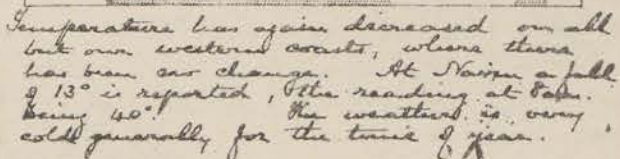 Temperature has again decreased on all
but our western coasts, where there
has been no change. At Nairn a fall
of 13° is reported, the reading at 8 a.m.
being 40°. The weather is very
cold generally for the time of year.